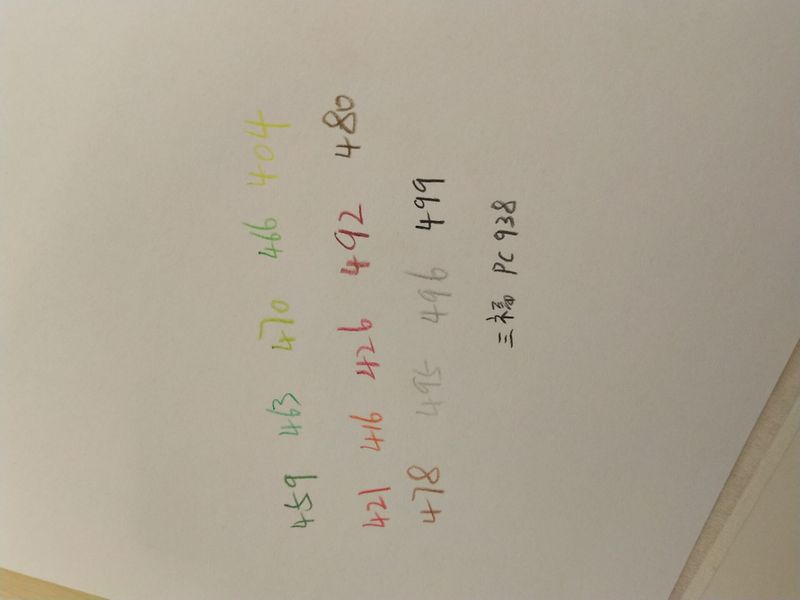 459 463 470 466 404
421 416 426 492 480
478 495 496 499
三福 PC 938